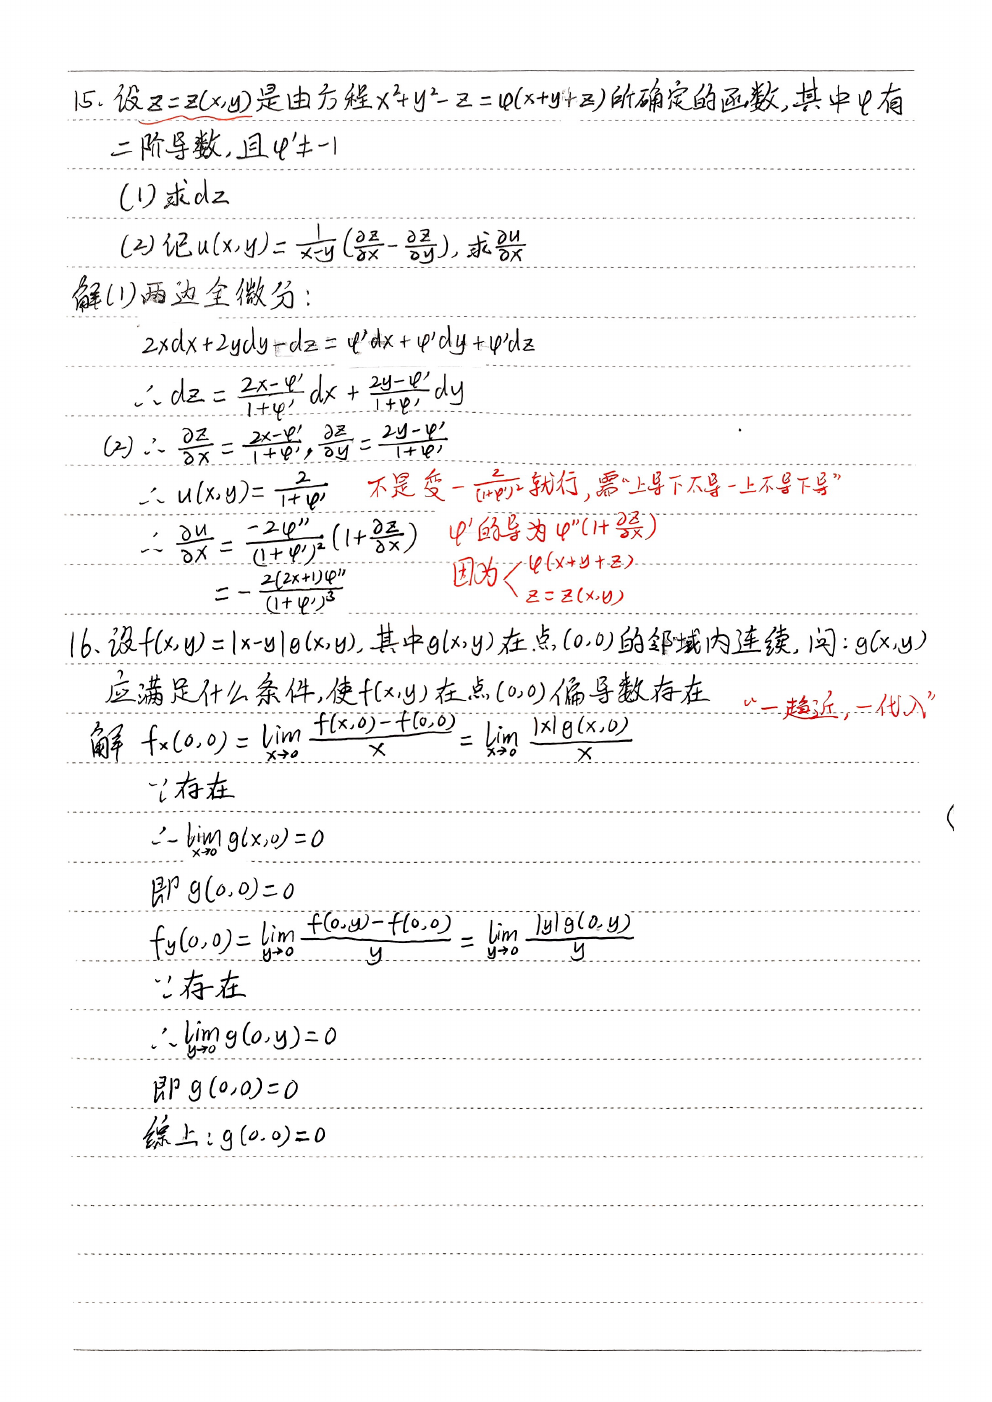 15. 设z=z(x,y)是由方程x²+y²-z=φ(x+y+z)所确定的函数,其中φ有
二阶导数,且φ'≠-1
(1)求dz
(2)记u(x,y)=\frac{1}{x-y}(\frac{∂z}{∂x}-\frac{∂z}{∂y}),求\frac{∂u}{∂x}
解(1)两边全微分:
2xdx+2ydy-dz=φ'dx+φ'dy+φ'dz
∴dz=\frac{2x-φ'}{1+φ'}dx+\frac{2y-φ'}{1+φ'}dy
(2)∴\frac{∂z}{∂x}=\frac{2x-φ'}{1+φ'},\frac{∂z}{∂y}=\frac{2y-φ'}{1+φ'}
∴u(x,y)=\frac{2}{1+φ'} 不是变-\frac{2}{(1+φ')²}就行,需“上导下不导-上不导下导”
∴\frac{∂u}{∂x}=\frac{-2φ''}{(1+φ')²}(1+\frac{∂z}{∂x}) φ'的导为φ''(1+\frac{∂z}{∂x})
因为< φ(x+y+z)
z=z(x,y)
=-\frac{2(2x+1)φ''}{(1+φ')³}
16、设f(x,y)=|x-y|g(x,y),其中g(x,y)在点(0,0)的邻域内连续,问:g(x,y)
应满足什么条件,使f(x,y)在点(0,0)偏导数存在 “一趋近,一代入”
解 fx(0,0)=\lim_{x→0}\frac{f(x,0)-f(0,0)}{x}=\lim_{x→0}\frac{|x|g(x,0)}{x}
∵存在
∴\lim_{x→0}g(x,0)=0
即g(0,0)=0
fy(0,0)=\lim_{y→0}\frac{f(0,y)-f(0,0)}{y}=\lim_{y→0}\frac{|y|g(0,y)}{y}
∵存在
∴\lim_{y→0}g(0,y)=0
即g(0,0)=0
综上:g(0,0)=0